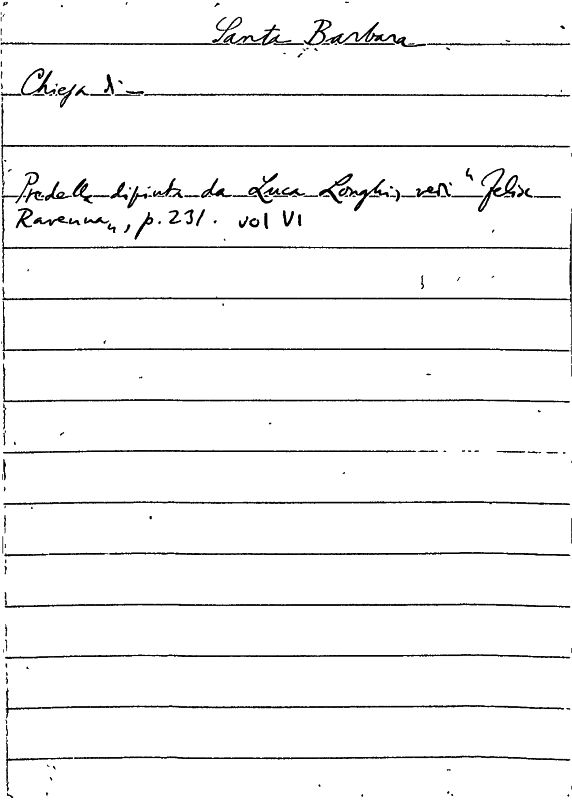 Santa Barbara
Chiesa di —
Predella dipinta da Luca Longhi, vedi "Felix
Ravenna", p. 231. vol VI